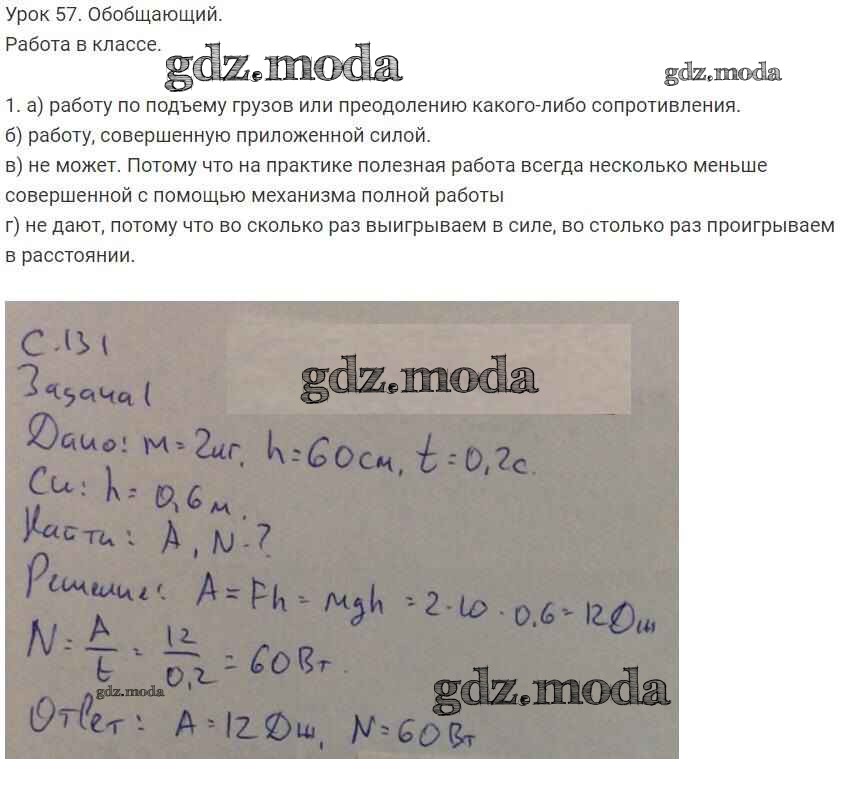 Урок 57. Обобщающий.
Работа в классе.
gdz.moda
gdz.moda
1. а) работу по подъему грузов или преодолению какого-либо сопротивления.
б) работу, совершенную приложенной силой.
в) не может. Потому что на практике полезная работа всегда несколько меньше
совершенной с помощью механизма полной работы
г) не дают, потому что во сколько раз выигрываем в силе, во столько раз проигрываем
в расстоянии.
С. 131
gdz.moda
Задача 1
Дано: m = 2кг, h = 60см, t = 0,2с.
Си: h = 0,6м.
Найти: A, N - ?
Решение: A = Fh = mgh = 2·10·0,6 = 12Дж
N = A/t = 12/0,2 = 60Вт.
gdz.moda
gdz.moda
Ответ: A = 12Дж, N = 60Вт